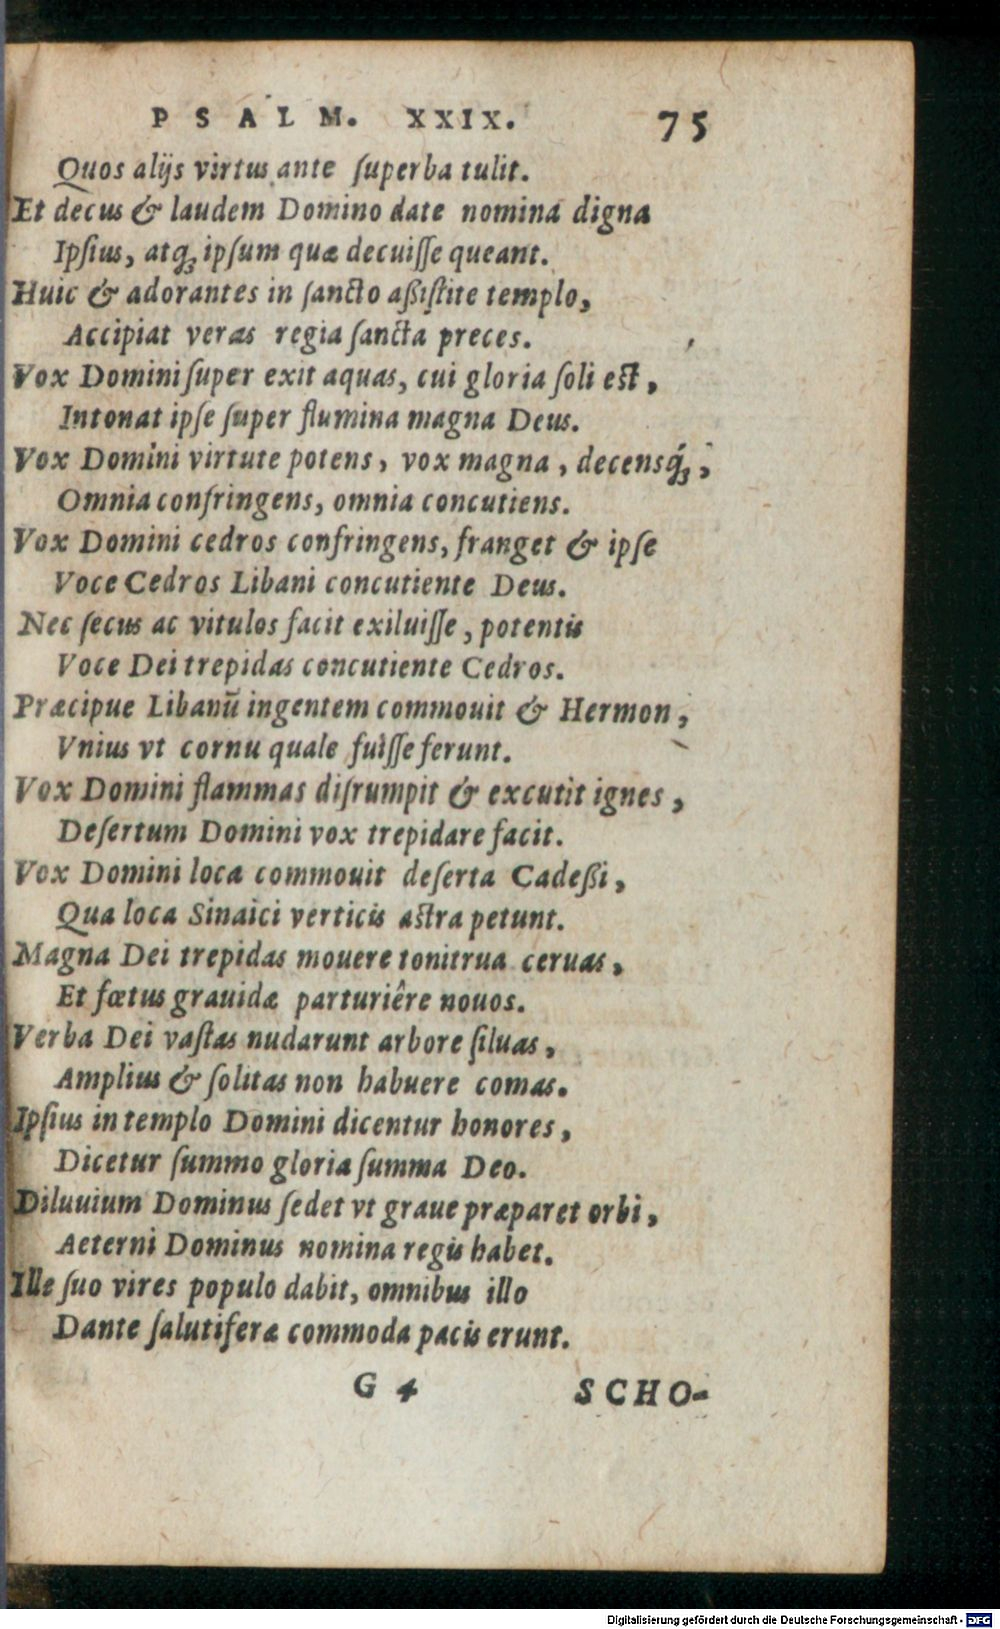 PSALM. XXIX. 75
Quos alijs virtus ante ſuperba tulit.
Et decus & laudem Domino date nomina digna
Ipſius, atq́ꝫ ipſum quæ decuiſſe queant.
Huic & adorantes in ſancto aßiſtite templo,
Accipiat veras regia ſancta preces.
Vox Domini ſuper exit aquas, cui gloria ſoli est,
Intonat ipſe ſuper flumina magna Deus.
Vox Domini virtute potens, vox magna, decensq́ꝫ,
Omnia confringens, omnia concutiens.
Vox Domini cedros confringens, franget & ipſe
Voce Cedros Libani concutiente Deus.
Nec ſecus ac vitulos facit exiluiſſe, potentis
Voce Dei trepidas concutiente Cedros.
Præcipue Libanū ingentem commouit & Hermon,
Vnius vt cornu quale fuiſſe ferunt.
Vox Domini flammas diſrumpit & excutit ignes,
Deſertum Domini vox trepidare facit.
Vox Domini loca commouit deſerta Cadeßi,
Qua loca Sinaici verticis astra petunt.
Magna Dei trepidas mouere tonitrua ceruas,
Et fœtus grauidæ parturiêre nouos.
Verba Dei vaſtas nudarunt arbore ſiluas,
Amplius & ſolitas non habuere comas.
Ipſius in templo Domini dicentur honores,
Dicetur ſummo gloria ſumma Deo.
Diluuium Dominus ſedet vt graue præparet orbi,
Aeterni Dominus nomina regis habet.
Ille ſuo vires populo dabit, omnibus illo
Dante ſalutiferæ commoda pacis erunt.
G 4 SCHO-
Digitalisierung gefördert durch die Deutsche Forschungsgemeinschaft - DFG